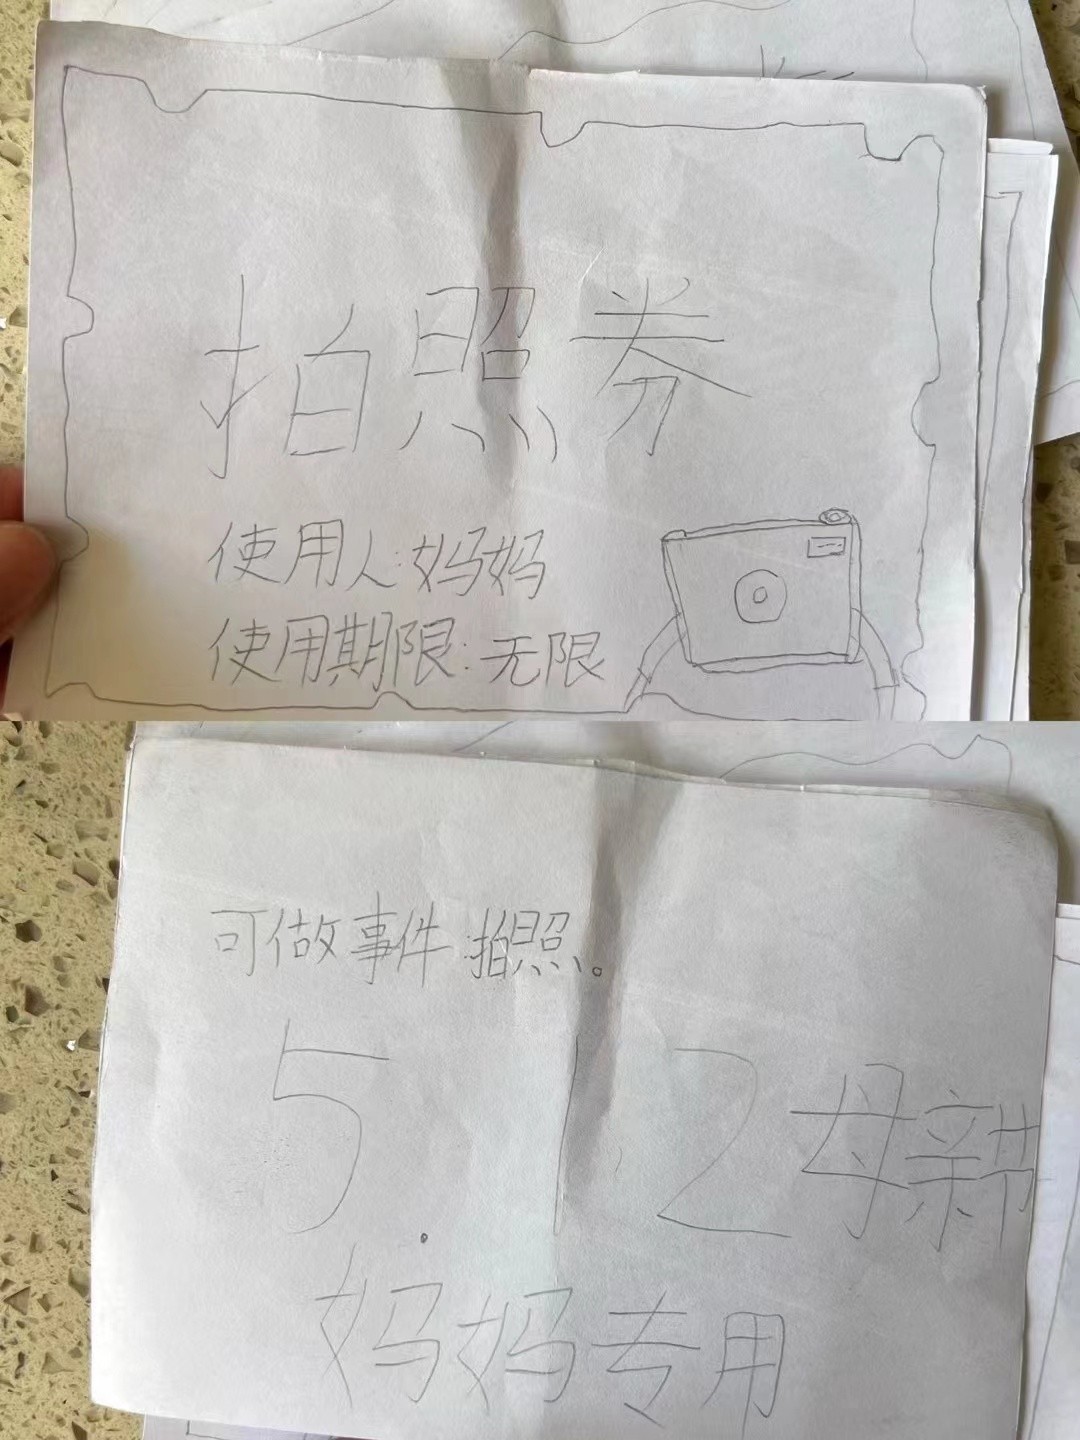 拍照券
使用人:妈妈
使用期限:无限
可做事件:拍照。
5.12母亲
妈妈专用